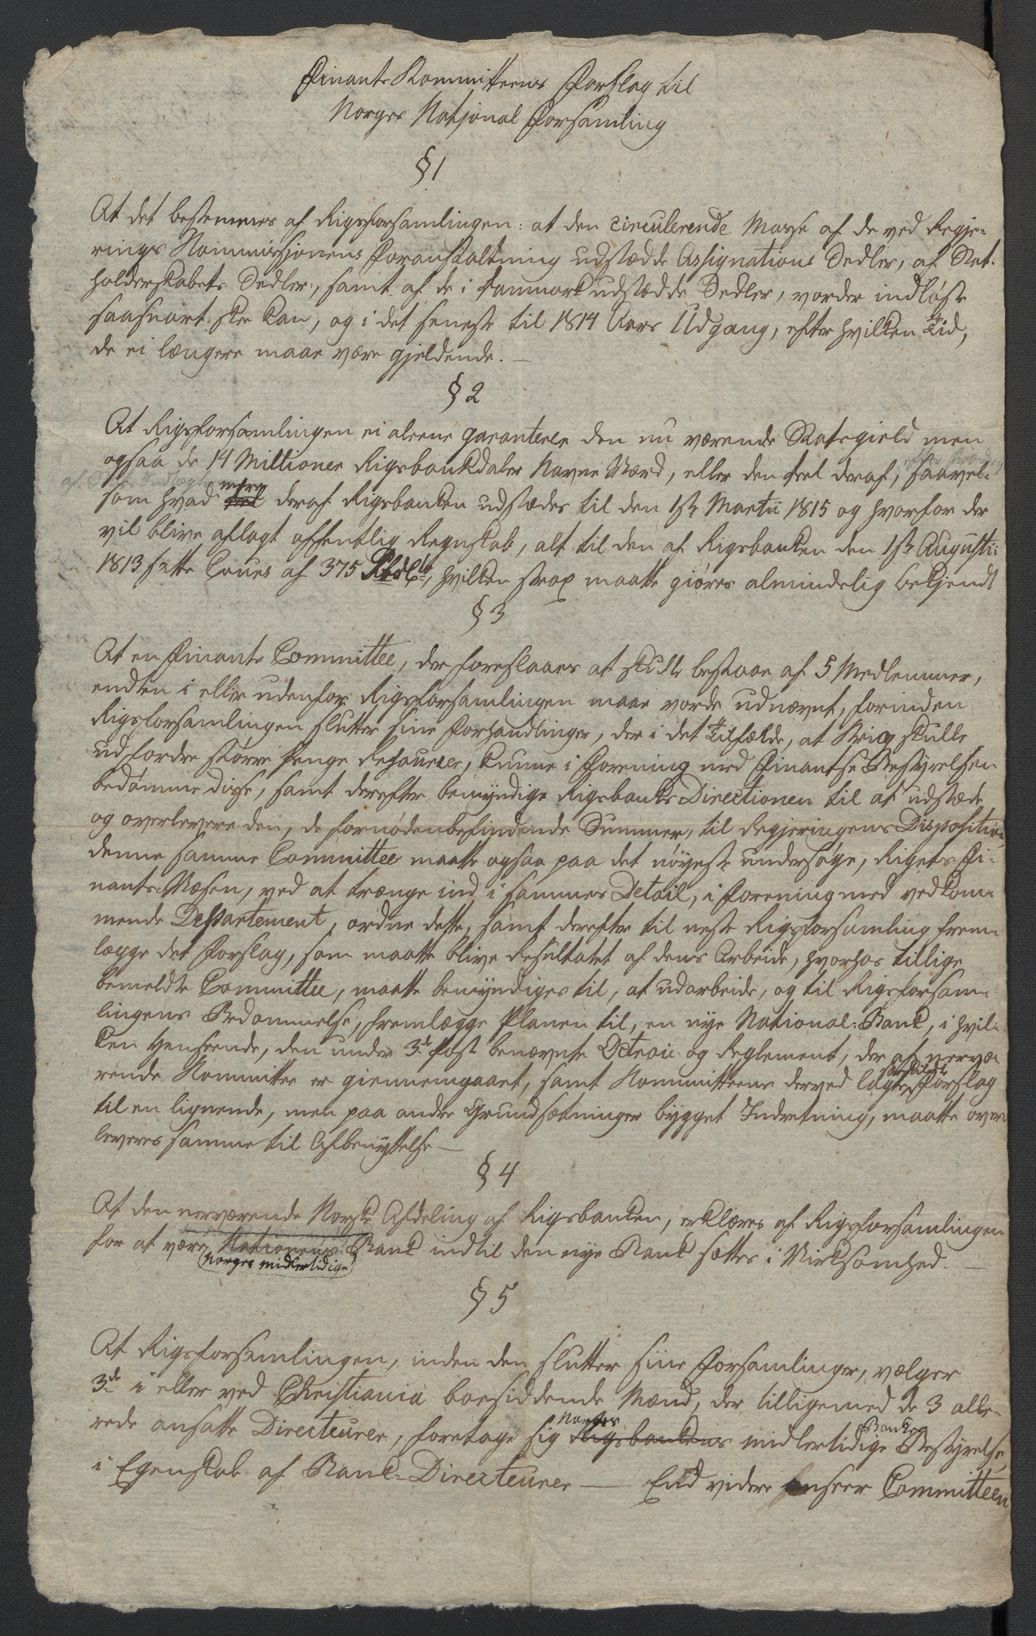 Finants Kommitteens Forslag til
Norges Natjonal Forsamling
§ 1
At det bestemmes af Rigsforsamlingen: at den circulerende Masse af de ved Regje-
rings Kommissjonens Foranstaltning udstædde Assignations Sedler, af Stat-
holderskabets Sedler, samt af de i Danmark udstædde Sedler, vorder indløste
saasnart skee kan, og i det seneste til 1814 Aars Udgang, efter hvilken Tid,
de ei længere maae være gjeldende. —
§ 2
At Rigsforsamlingen ei aleene garanterer den nu værende Statsgield men
ogsaa de 14 Millioner Rigsbankdaler Navne Værd, eller den Deel deraf, saavel-
som hvad mere deraf Rigsbanken udstæder til den 1ste Martii 1815 og hvorfor der
vil blive aflagt offentlig Regnskab, alt til den af Rigsbanken den 1ste Augusti
1813 satte Cours af 375 Rbdlr, hvilken strax maatte giøres almindelig bekjendt
§ 3
At en Finants Committee, der foreslaaes at skulle bestaae af 5 Medlemmer,
endten i eller udenfor Rigsforsamlingen maae vorde udnævnt, forinden
Rigsforsamlingen slutter sine Forhandlinger, der i det Tilfælde, at Krig skulle
udfordre større Penge Resourcer, kunne i Forening med Finantse Bestyrelsen
bedømme disse, samt derefter bemyndige Rigsbanks Directionen til at udstæde
og overlevere den, de fornødenbefindende Summer, til Regjeringens Disposition,
denne samme Committee maatte ogsaa paa det nøyeste undersøge, Rigets Fi-
nants-Væsen, ved at trænge ind i sammes Detail, i Forening med vedkom-
mende Departement, ordne dette, samt derefter til neste Rigsforsamling frem-
lægge det Forslag, som maatte blive Resultatet af dens Arbeide, hvorhos tillige
bemeldte Committee, maatte bemyndiges til, at udarbeide, og til Rigsforsam-
lingens Bedømmelse, fremlægge Planen til, en nye National-Bank, i hvil-
ken Henseende, den under 3die Post benævnte Octroie og Reglement, der af nervæ-
rende Kommittee er giennemgaaet, samt Kommitteens derved lagte særskildte Forslag
til en lignende, men paa andre Grundsætninger bygget Indretning, maatte over-
leveres samme til Afbenyttelse —
§ 4
At den nerværende Norske Afdeling af Rigsbanken, erklæres af Rigsforsamlingen
for at være Nationens Bank indtil den nye Bank sættes i Virksomhed. —
Norges midlertidige
§ 5
At Rigsforsamlingen, inden den slutter sine Forsamlinger, vælger
3de i eller ved Christiania boesiddende Mænd, der tilligemed de 3 alle-
rede ansatte Directeurer, foretage sig Norges Rigsbankens midlertidige Banks Bestyrelse,
i Egenskab af Bank-Directeurer — End videre anseer Committeen